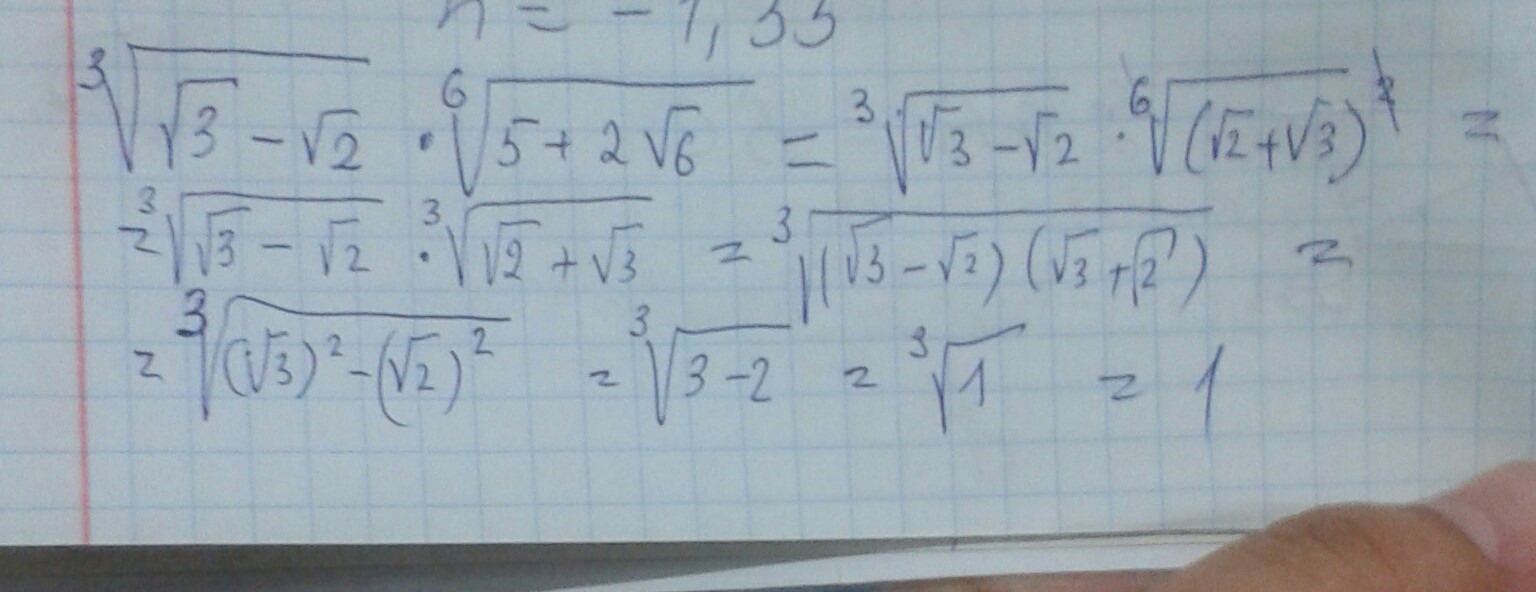 n = -1,33
∛(√3 - √2) · ⁶√(5 + 2√6) = ∛(√3 - √2) · ⁶√((√2 + √3)²) =
= ∛(√3 - √2) · ∛(√2 + √3) = ∛((√3 - √2)(√3 + √2)) =
= ∛((√3)² - (√2)²) = ∛(3 - 2) = ∛1 = 1